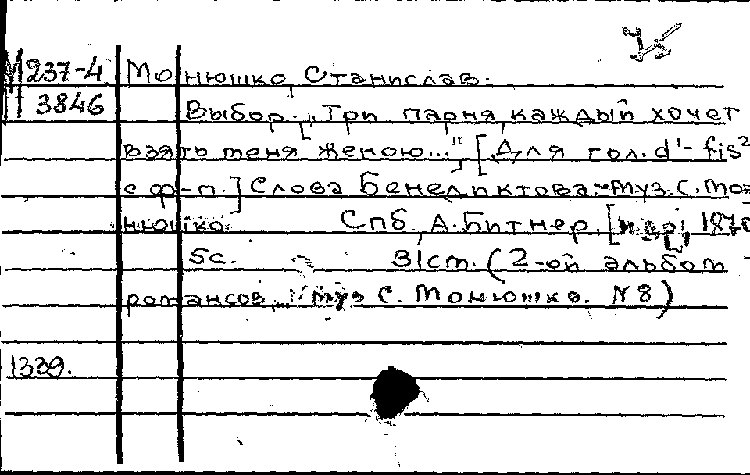 М237-4 Монюшко, Станислав.
3846 Выбор. "Три парня, каждый хочет
взять меня женою..." [Для гол. d¹- fis²
с ф-п.] Слова Бенедиктова. Муз. С. Мо-
нюшко. Спб, А. Битнер,
5с. 31ст. (2-ой альбом
романсов муз С. Монюшко. N8)
1339.